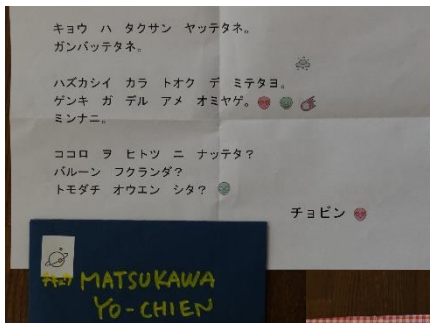 キョウ ハ タクサン ヤッテタネ。
ガンバッテタネ。
ハズカシイ カラ トオク デ ミテタヨ。
ゲンキ ガ デル アメ オミヤゲ。
ミンナニ。
ココロ ヲ ヒトツ ニ ナッテタ？
バルーン フクランダ？
トモダチ オウエン シタ？
チョビン
MATSUKAWA
YO-CHIEN